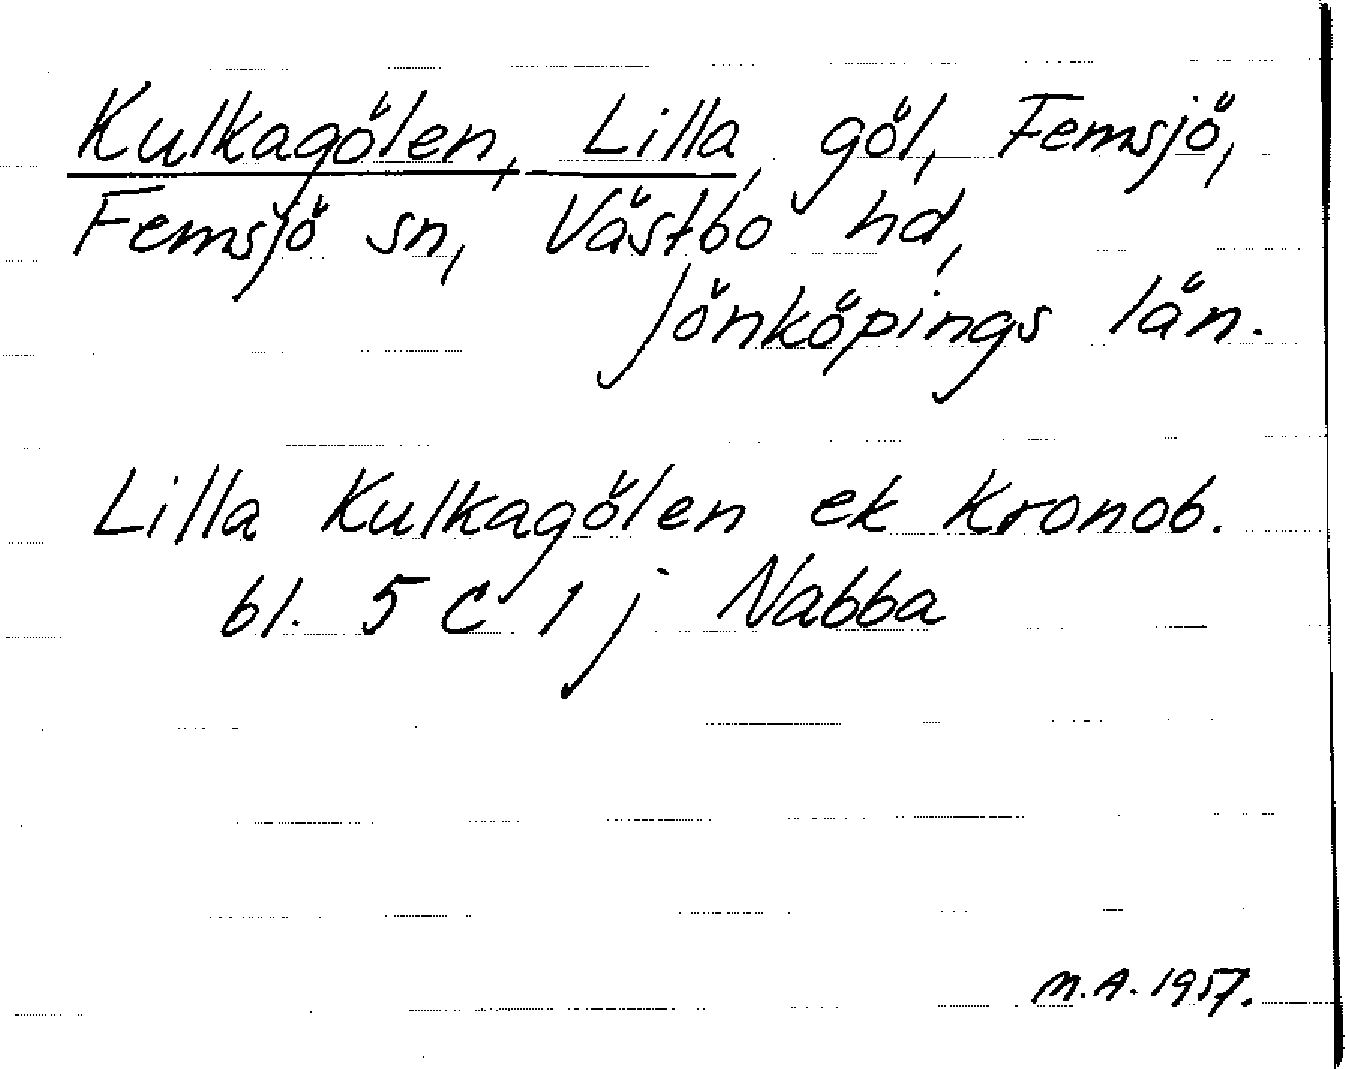 Kulkagölen, Lilla, göl, Femsjö,
Femsjö sn, Västbo hd,
Jönköpings län.
Lilla Kulkagölen ek Kronob.
bl. 5 C 1 j Nabba
M.A. 1957.